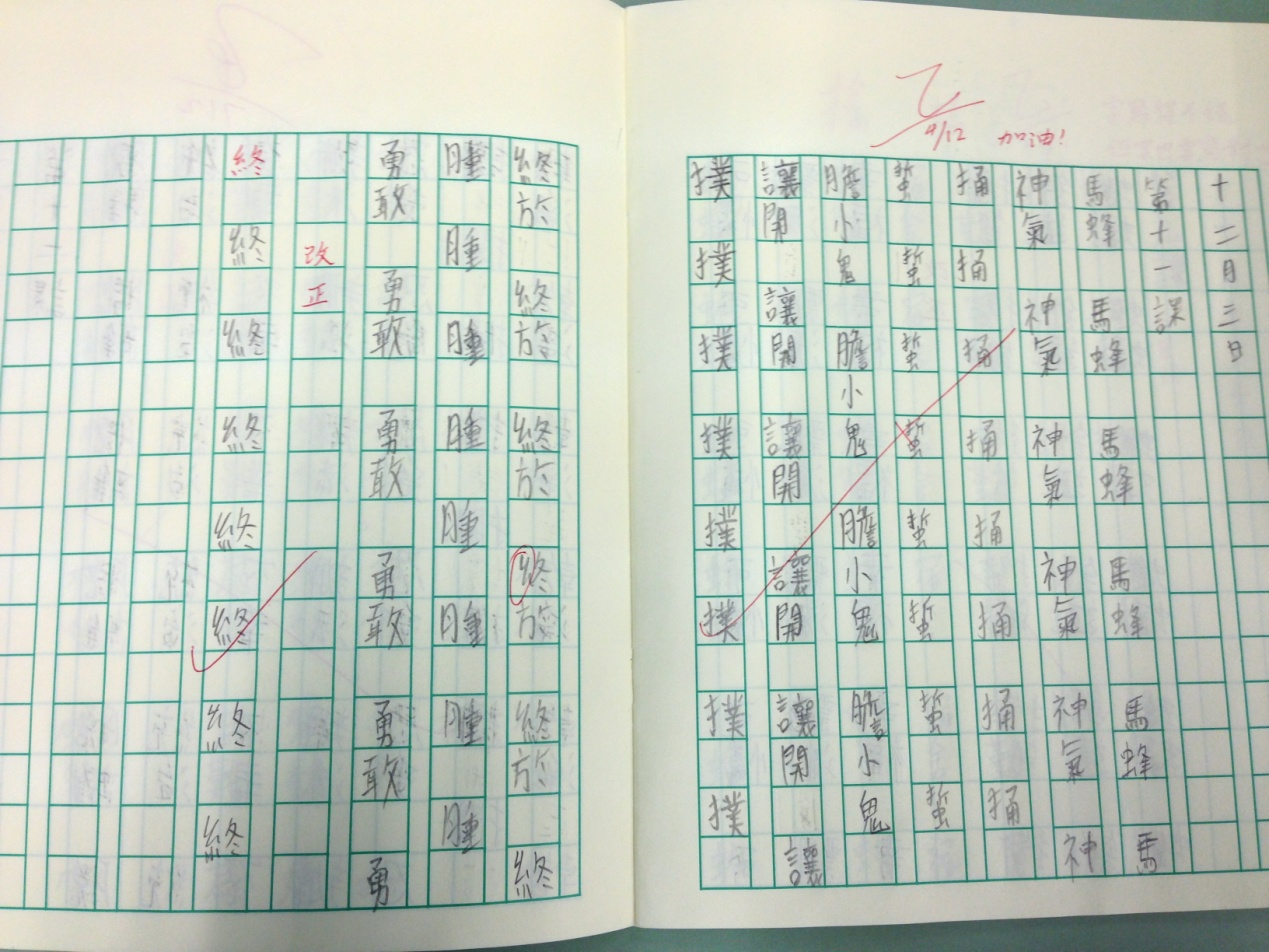 乙
4/12 加油!
十二月三日
第十一課
馬蜂 馬蜂 馬蜂 馬蜂 馬蜂 馬
神氣 神氣 神氣 神氣 神氣 神
捅 捅 捅 捅 捅 捅 捅 捅
蜇 蜇 蜇 蜇 蜇 蜇 蜇 蜇
膽小鬼 膽小鬼 膽小鬼 膽小鬼
讓開 讓開 讓開 讓開 讓開 讓
撲 撲 撲 撲 撲 撲 撲 撲
終於 終於 終於 終於 終於 終
腫 腫 腫 腫 腫 腫 腫 腫
勇敢 勇敢 勇敢 勇敢 勇敢 勇
改正
終 終 終 終 終 終 終 終